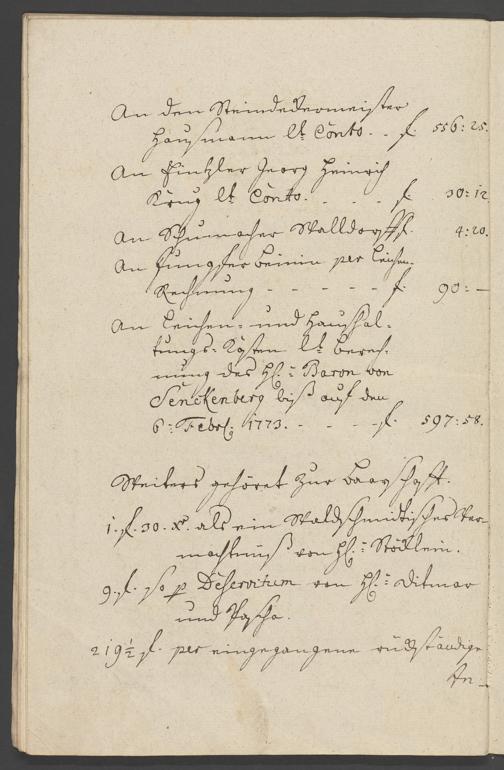 An den Steindeckermeister
Hausmann lt. Conto. . f. 556: 25.
An Fintzler Georg Heinrich
Krug lt. Conto. . . . f. 30: 12
An Schumacher Walldorff f. 4: 20.
An Jungfer Beinin per Leichen-
Rechnung - - - - - f. 90: —
An Leichen- und Haushal-
tungs-Kösten lt. Berech-
nung des H: Baron von
Senckenberg biß auf den
6: Febr: 1773. - - - f. 597: 58.
Weiters gehöret zur Baarschafft.
1. f. 30. xr. als ein Waldschmidtisches Ver-
mächtnüß von H: Stöcklein.
9. f. so p Deservitum von H: Ditmar
und Pascha.
219½ f. per eingegangene rückständige
An-